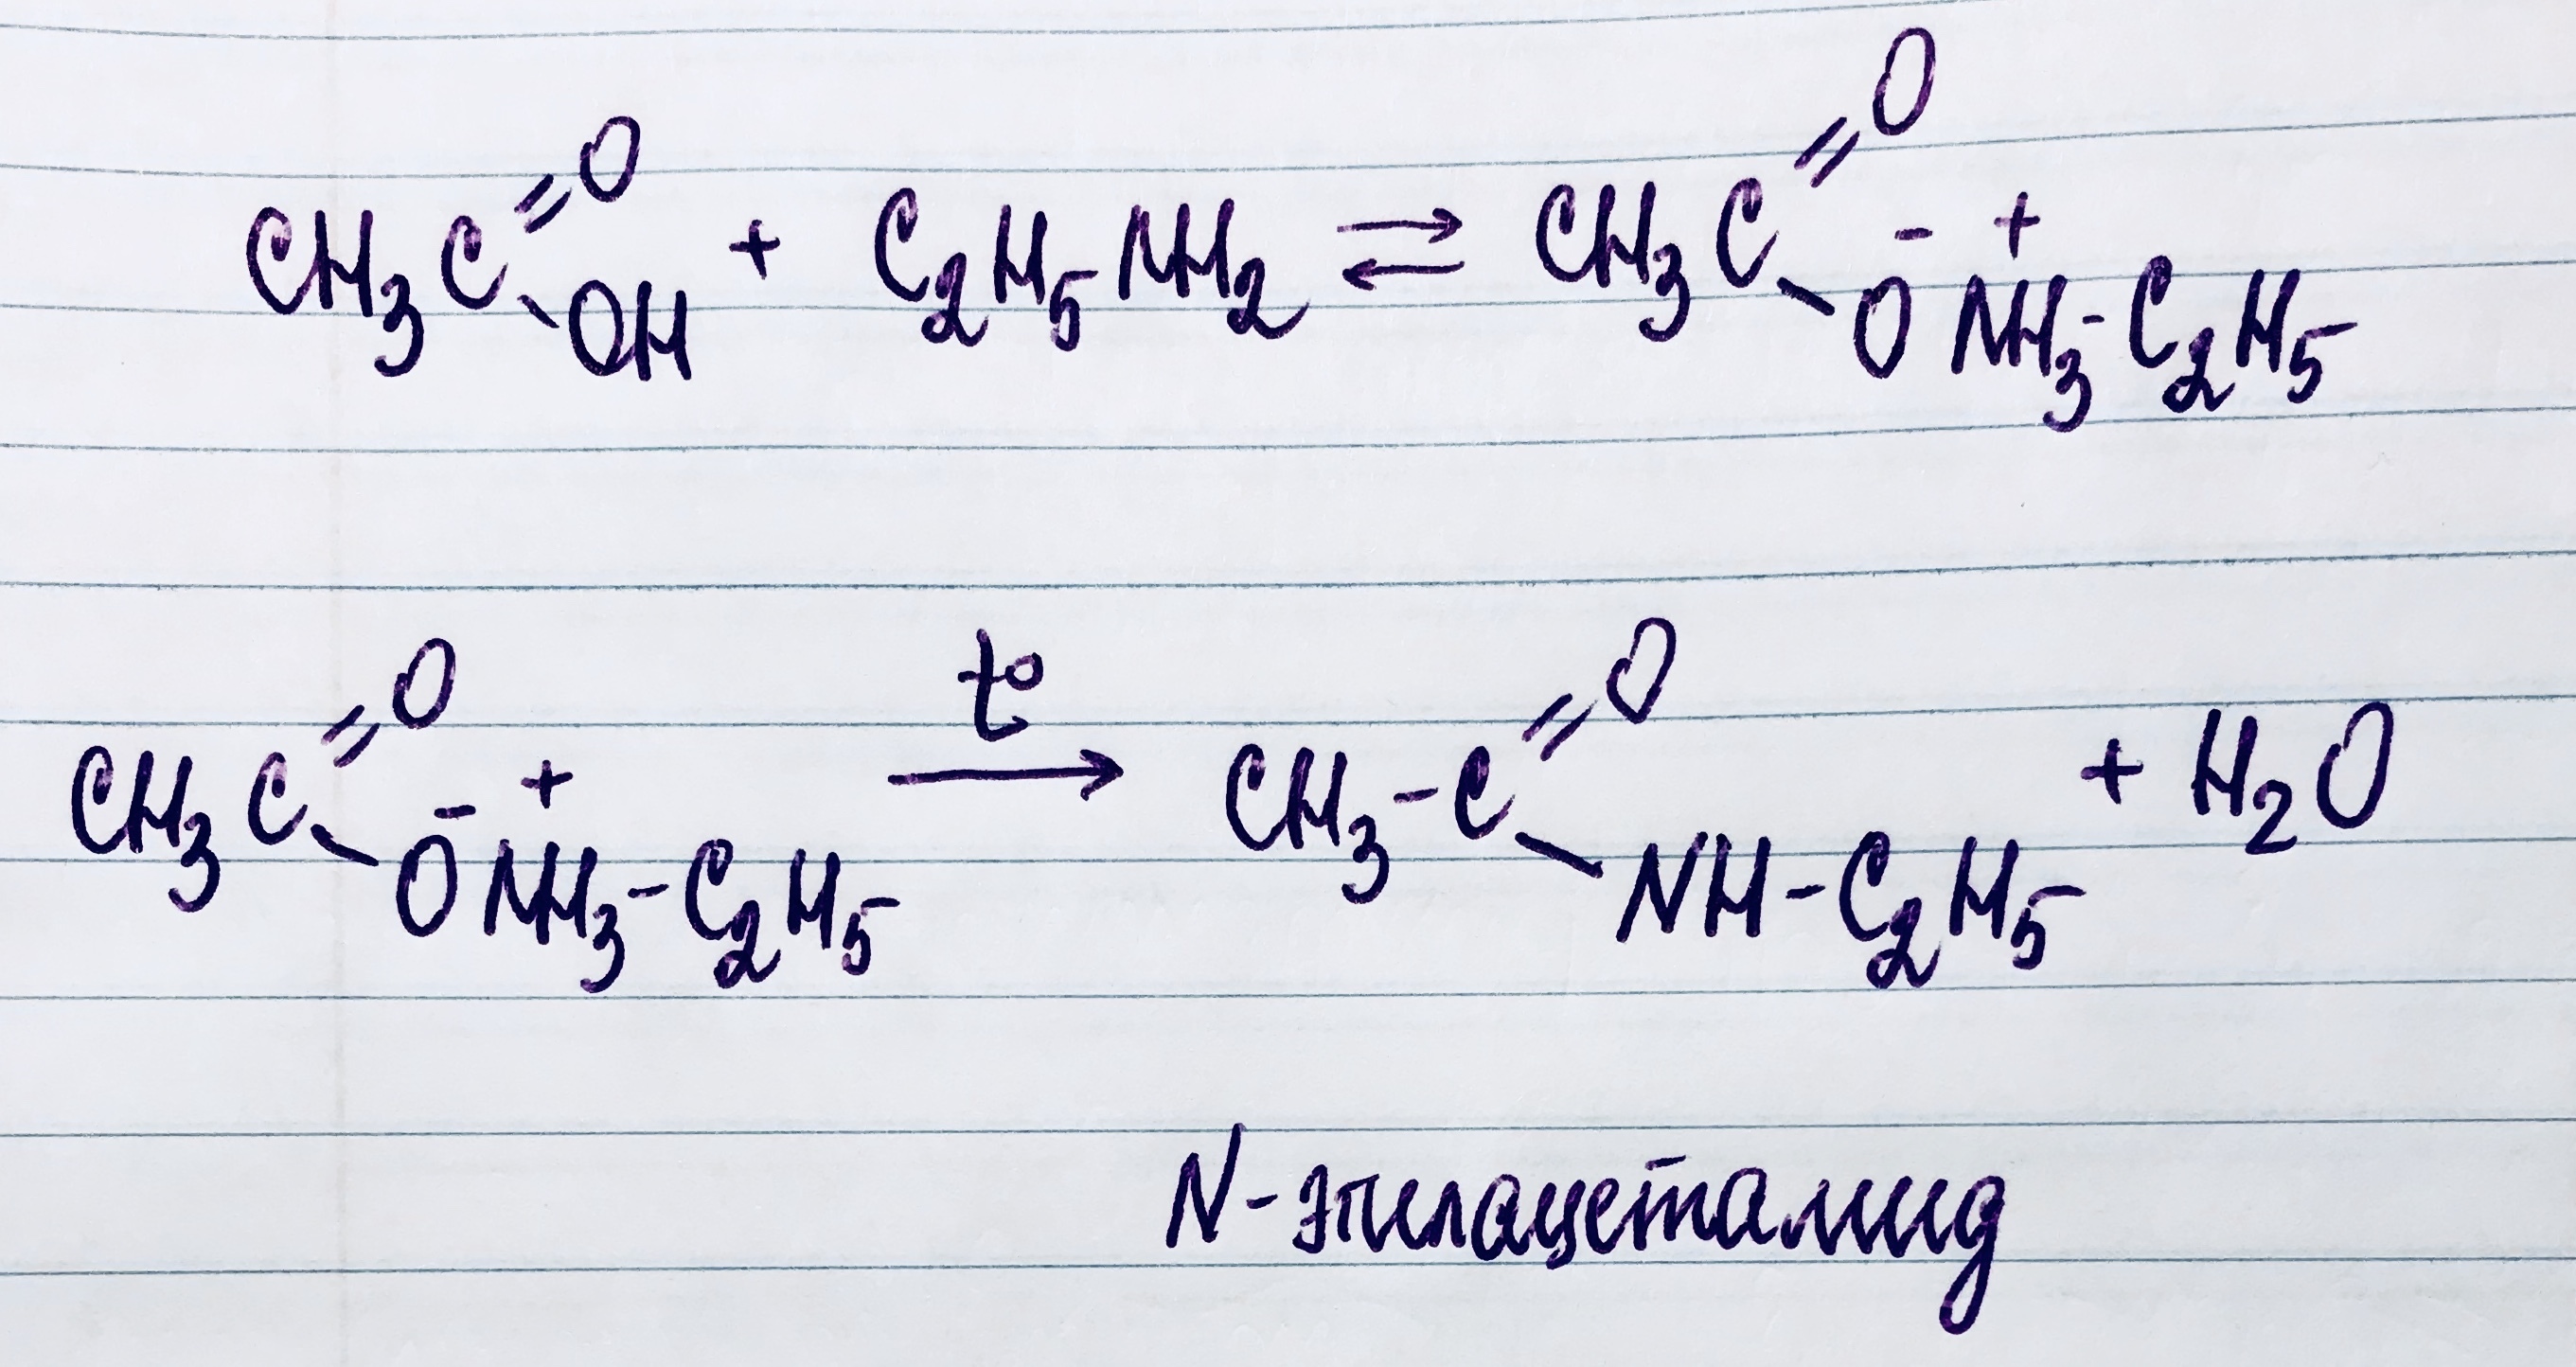 CH₃C(=O)OH + C₂H₅NH₂ ⇄ CH₃C(=O)O⁻ ⁺NH₃-C₂H₅
CH₃C(=O)O⁻ ⁺NH₃-C₂H₅ —t°→ CH₃-C(=O)NH-C₂H₅ + H₂O
N-этилацетамид